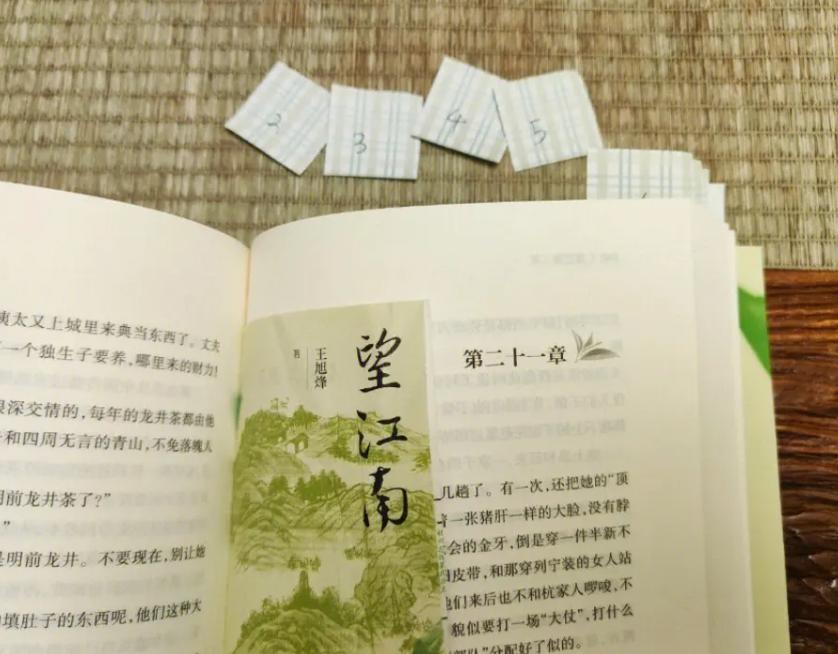 2
3
4
5
姨太又上城里来典当东西了。丈夫
一个独生子要养，哪里来的财力！
很深交情的，每年的龙井茶都由他
和四周无言的青山，不免落魄人
明前龙井茶了？”
”
是明前龙井。不要现在，别让她
填肚子的东西呢，他们这种大
望江南
王旭烽
著
第二十一章
几趟了。有一次，还把她的“顶
一张猪肝一样的大脸，没有脖
会的金牙，倒是穿一件半新不
皮带，和那穿列宁装的女人站
他们来后也不和杭家人啰唆，不
貌似要打一场“大仗”，打什么
部队”分配好了似的。